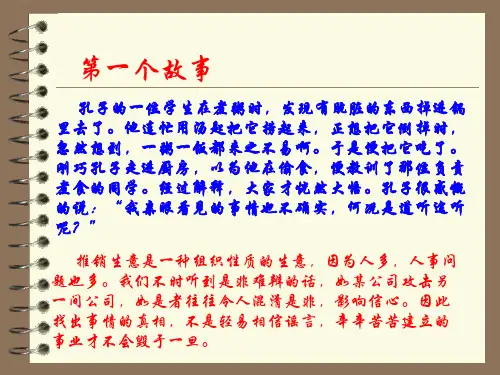 第一个故事
孔子的一位学生在煮粥时，发现有肮脏的东西掉进锅
里去了。他连忙用汤匙把它捞起来，正想把它倒掉时，
忽然想到，一粥一饭都来之不易啊。于是便把它吃了。
刚巧孔子走进厨房，以为他在偷食，便教训了那位负责
煮食的同学。经过解释，大家才恍然大悟。孔子很感慨
的说：“我亲眼看见的事情也不确实，何况是道听途听
呢？”
推销生意是一种组织性质的生意，因为人多，人事问
题也多。我们不时听到是非难辩的话，如某公司攻击另
一间公司，如是者往往令人混清是非，影响信心。因此
找出事情的真相，不是轻易相信谣言，辛辛苦苦建立的
事业才不会毁于一旦。